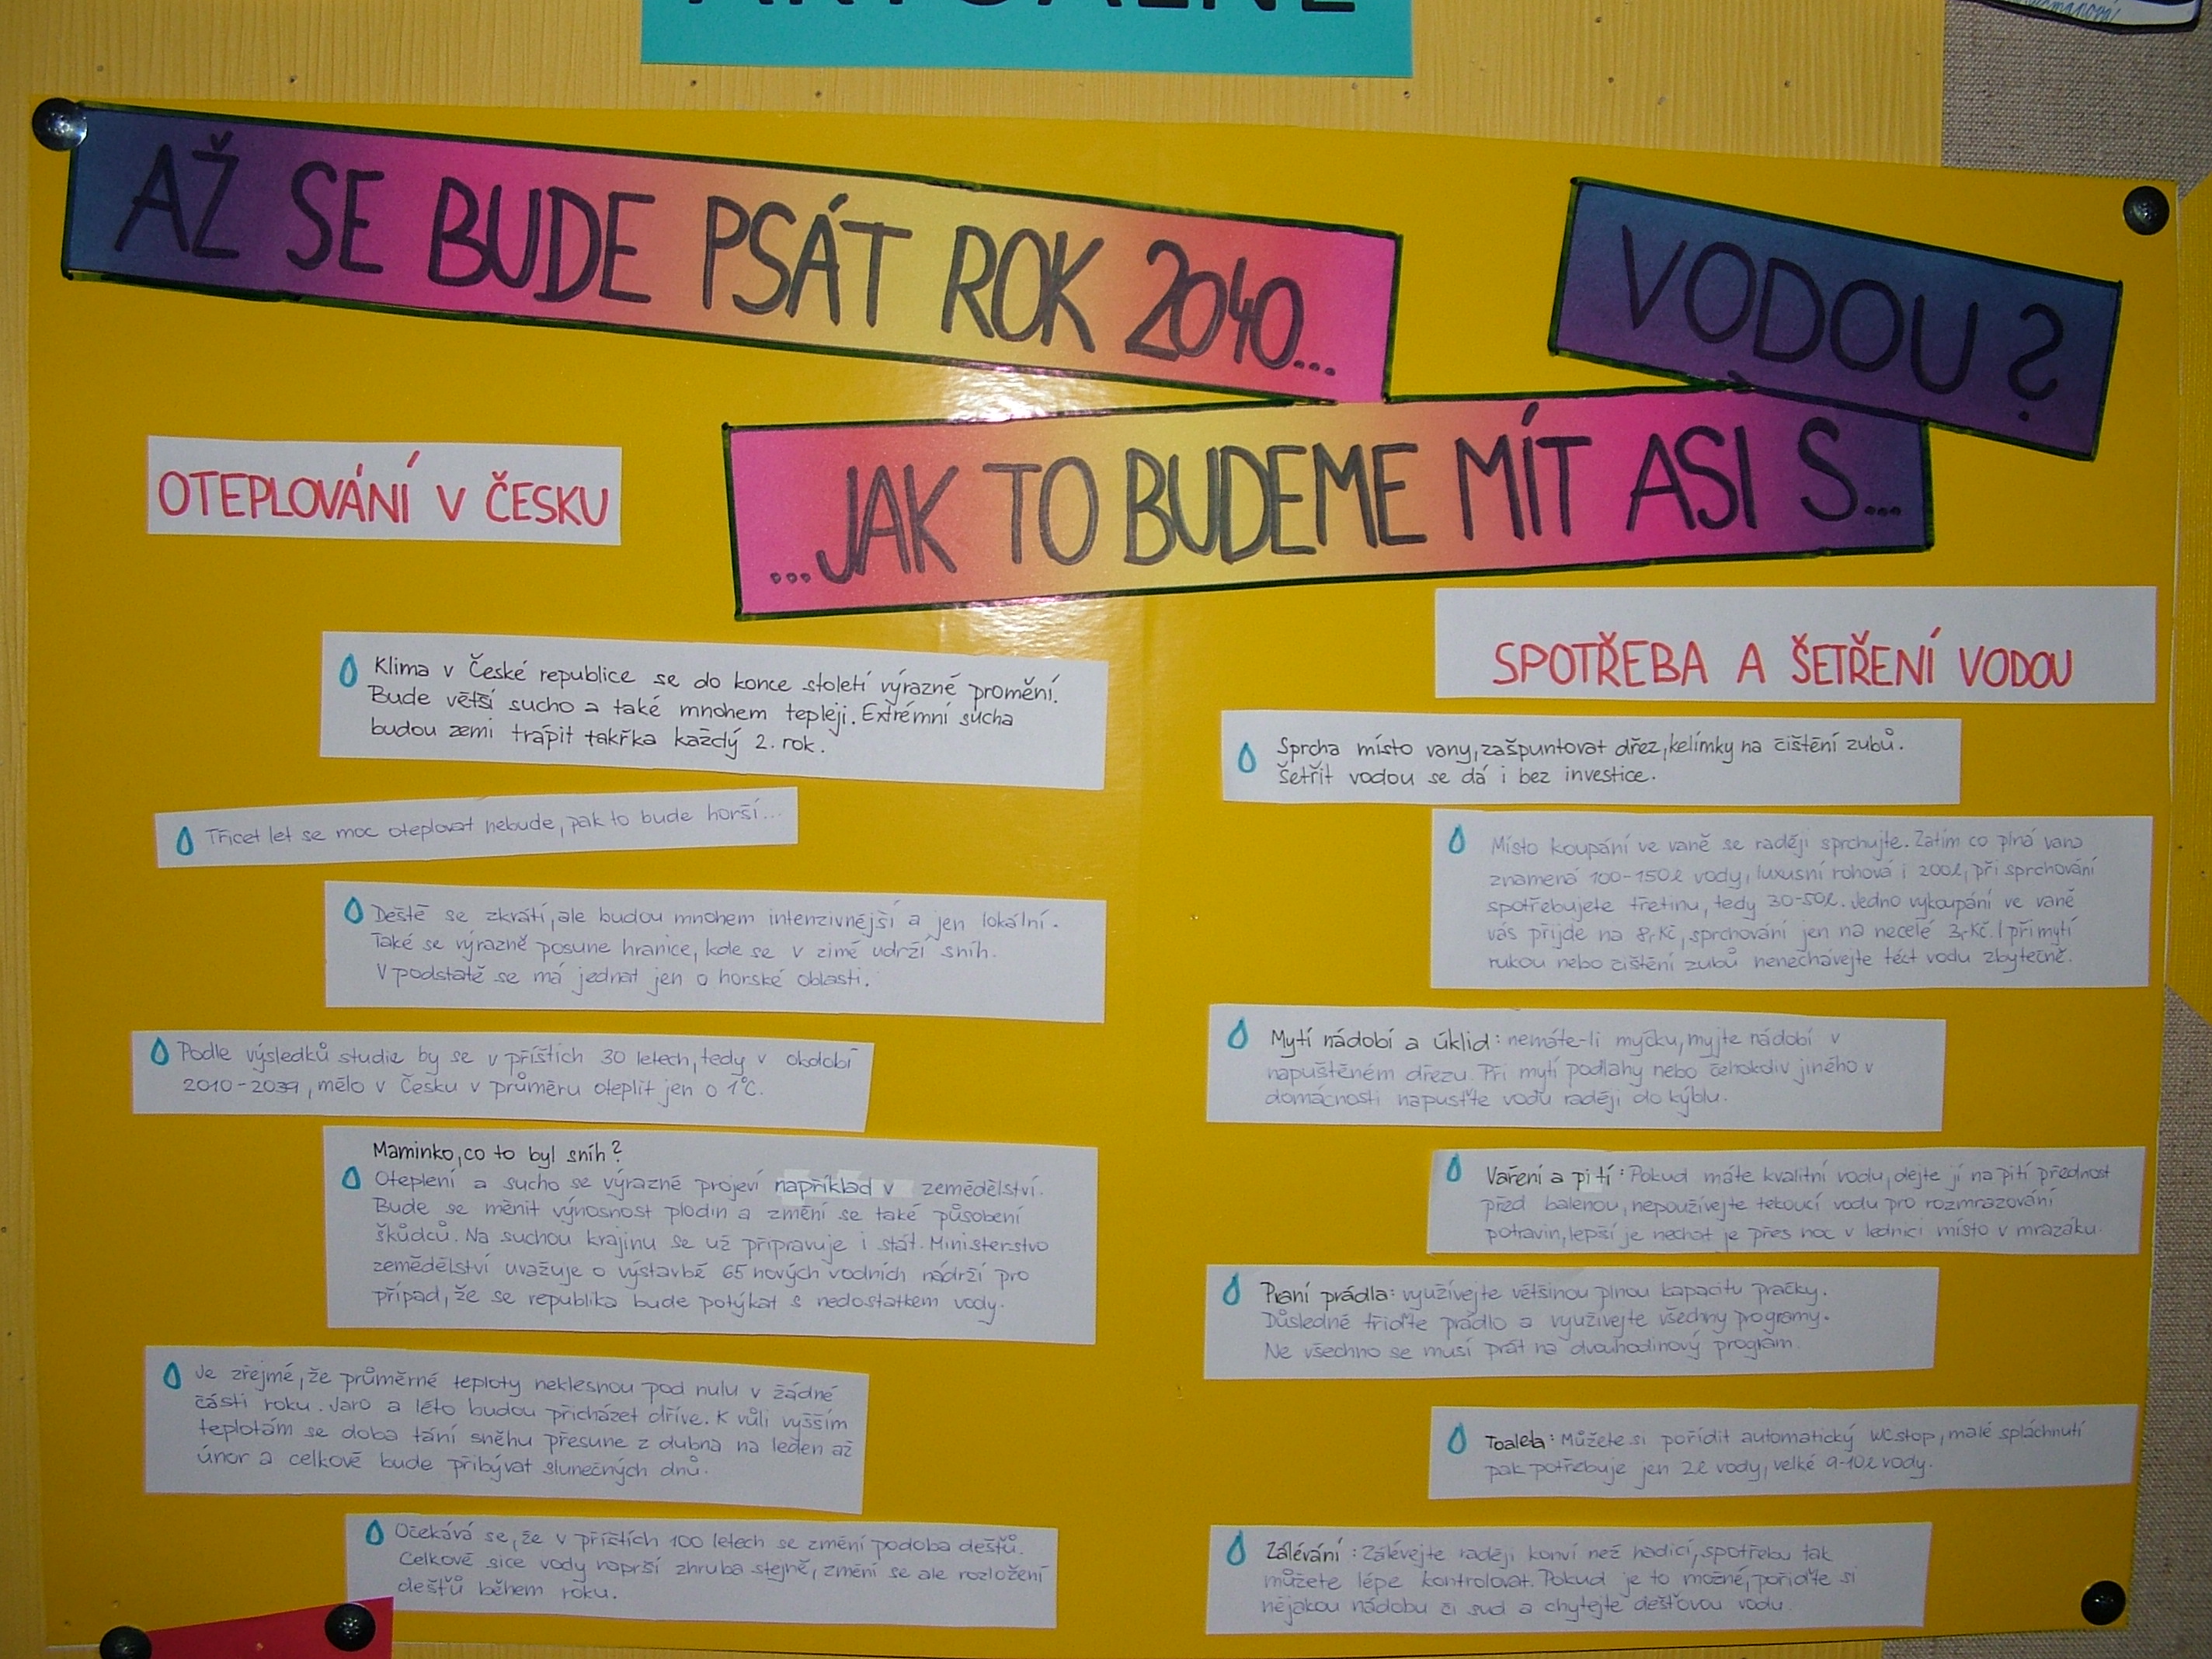 AKTUÁLNĚ
AŽ SE BUDE PSÁT ROK 2040...
...JAK TO BUDEME MÍT ASI S...
VODOU?
OTEPLOVÁNÍ V ČESKU
Klima v České republice se do konce století výrazně promění.
Bude větší sucho a také mnohem tepleji. Extrémní sucha
budou zemi trápit takřka každý 2. rok.
Třicet let se moc oteplovat nebude, pak to bude horší...
Deště se zkrátí, ale budou mnohem intenzivnější a jen lokální.
Také se výrazně posune hranice, kde se v zimě udrží sníh.
V podstatě se má jednat jen o horské oblasti.
Podle výsledků studie by se v příštích 30 letech, tedy v období
2010-2039, mělo v Česku v průměru oteplit jen o 1°C.
Maminko, co to byl sníh?
Oteplení a sucho se výrazně projeví například v zemědělství.
Bude se měnit výnosnost plodin a změní se také působení
škůdců. Na suchou krajinu se už připravuje i stát. Ministerstvo
zemědělství uvažuje o výstavbě 65 nových vodních nádrží pro
případ, že se republika bude potýkat s nedostatkem vody.
Je zřejmé, že průměrné teploty neklesnou pod nulu v žádné
části roku. Jaro a léto budou přicházet dříve. K vůli vyšším
teplotám se doba tání sněhu přesune z dubna na leden až
únor a celkově bude přibývat slunečných dnů.
Očekává se, že v příštích 100 letech se změní podoba dešťů.
Celkově sice vody naprší zhruba stejně, změní se ale rozložení
dešťů během roku.
SPOTŘEBA A ŠETŘENÍ VODOU
Sprcha místo vany, zašpuntovat dřez, kelímky na čištění zubů.
Šetřit vodou se dá i bez investice.
Místo koupání ve vaně se raději sprchujte. Zatím co plná vana
znamená 100-150l vody, luxusní rohová i 200l, při sprchování
spotřebujete třetinu, tedy 30-50l. Jedno vykoupání ve vaně
vás přijde na 8,-Kč, sprchování jen na necelé 3,-Kč. I při mytí
rukou nebo čištění zubů nenechávejte téct vodu zbytečně.
Mytí nádobí a úklid: nemáte-li myčku, myjte nádobí v
napuštěném dřezu. Při mytí podlahy nebo čehokdiv jiného v
domácnosti napusťte vodu raději do kýblu.
Vaření a pití: Pokud máte kvalitní vodu, dejte jí na pití přednost
před balenou, nepoužívejte tekoucí vodu pro rozmrazování
potravin, lepší je nechat je přes noc v lednici místo v mrazáku.
Praní prádla: využívejte většinou plnou kapacitu pračky.
Důsledně třiďte prádlo a využívejte všechny programy.
Ne všechno se musí prát na dvouhodinový program.
Toaleta: Můžete si pořídit automatický WC stop, malé spláchnutí
pak potřebuje jen 2l vody, velké 9-10l vody.
Zálévání: Zálévejte raději konví než hadicí, spotřebu tak
můžete lépe kontrolovat. Pokud je to možné, pořiďte si
nějakou nádobu či sud a chytejte dešťovou vodu.